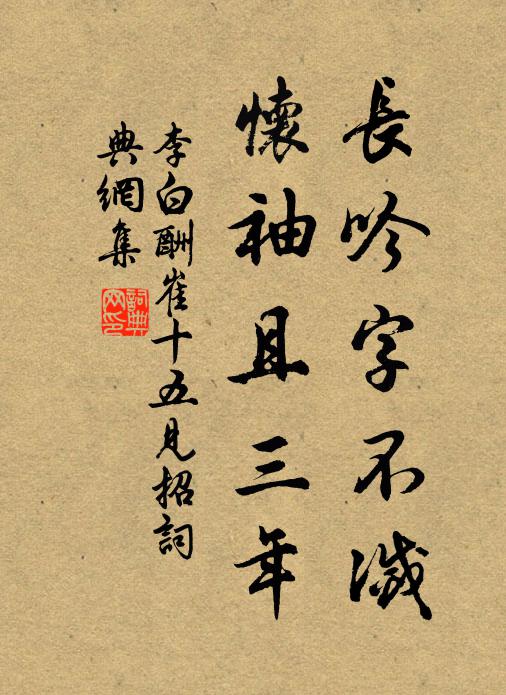 長吟字不滅
懷袖且三年
李白酬崔十五見招詞
典網集
詞典
网印